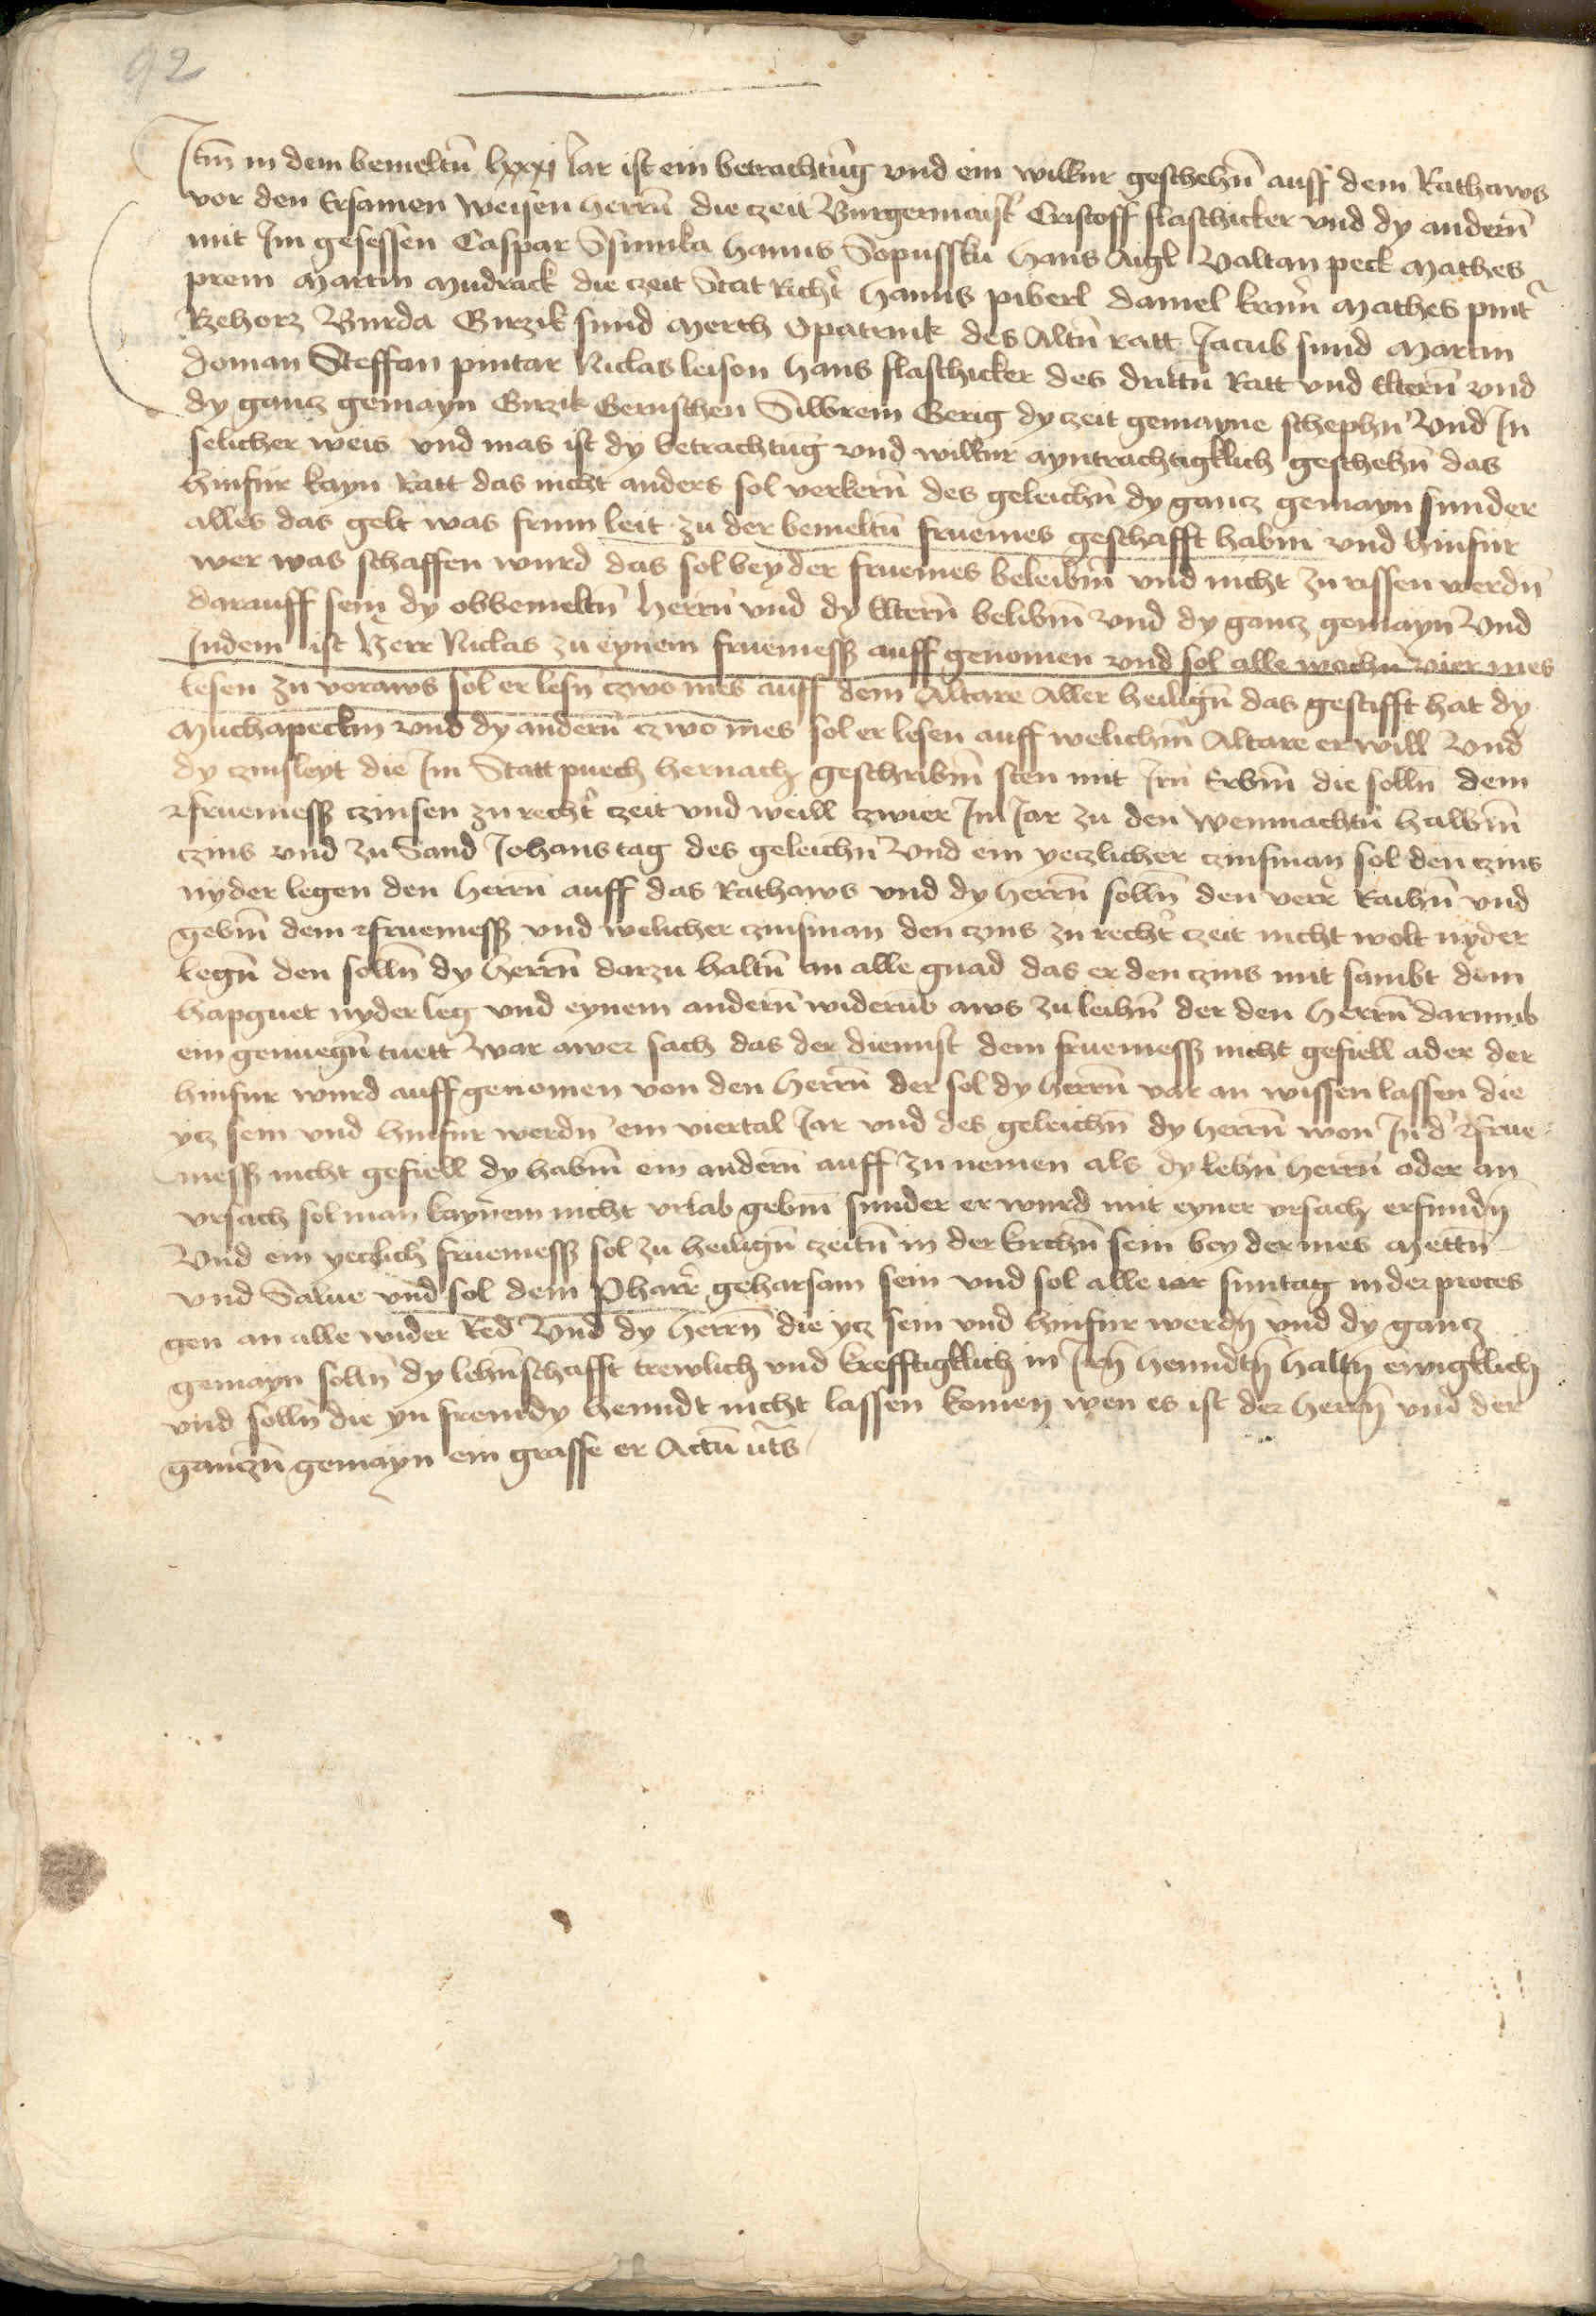 92
Itm̄ in dem bemeltn̄ lxxxj Iar ist ein betrachtūg vnd ein wilkur geschehn̄ auff dem Rathaws
vor den Ersamen weisen herrn̄ die czeit Burgermaist̄ Cristoff flaschicker vnd dy andern̄
mit Im gesessen Caspar Ssimka hanns Sopussku hans Aigl Valtan peck Mathes
prem Martin Mudrack die czeit Stat Richt̄ hanns piberl daniel kram̄ Mathes pint̄
Rzehorz Burda Girzik sund Merth Opatrnik des Altn̄ ratt Jacub sund Martin
doman Steffan pintar Niclas leison hans flaschicker des drittn̄ Ratt vnd Eltern̄ vnd
dy gancz gemayn Girzik Gernschen Silbrein Gerig dy czeit gemayne schephn̄ Vnd In
selicher weis vnd mas ist dy betrachtūg vnd wilkur ayntrachtigklich geschehn̄ das
hinfur kayn Ratt das nicht anders sol verkern̄ des geleichn̄ dy gancz gemayn sunder
alles das gelt was frum leit zu der bemeltn̄ fruemes geschafft habm̄ vnd hinfur
wer was schaffen wurd das sol bey der fruemes beleibm̄ vnd nicht zu rissen werdn̄
darauff sein dy obbemeltn̄ herrn̄ vnd dy Eltern̄ belibm̄ vnd dy gancz gemayn Vnd
Indem ist herr Niclas zu eynem fruemess̄ auff genomen vnd sol alle wochn̄ vier mes
lesen zu voraws sol er lesn̄ czwo mes auff dem Altare Aller heilign̄ das gestifft hat dy
Muchapeckin vnd dy andern̄ czwo mes sol er lesen auff welichm̄ Altare er will Vnd
dy czinsleyt die Im Statt puech hernach geschribm̄ sten mit Irn̄ Erbm̄ die solln̄ dem
fruemess̄ czinsen zu recht̄ czeit vnd weill czwier Im Jar zu den weinnachtn̄ halbm̄
czins vnd zu Sand Johans tag des geleichn̄ Vnd ein yeczlicher czinsman sol den czins
nyder legen den herrn̄ auff das Rathaws vnd dy herrn̄ solln̄ den verr̄ Raihn̄ vnd
gebm̄ dem fruemess̄ vnd welicher czinsman den czins zu recht̄ czeit nicht wolt nyder
legn̄ den solln̄ dy herrn̄ darzu haltn̄ an alle gnad das er den czins mit sambt dem
hapguet nyder leg vnd eynem andern̄ widerūb aws zu leihn̄ der den herrn̄ darumb
ein genuegn̄ tuett War awer sach das der dinnst dem fruemess̄ nicht gefiell ader der
hinfur wurd auff genomen von den herrn̄ der sol dy herrn̄ vor an wissen lassen die
ycz sein vnd hinfur werdn̄ ein viertal Jar vnd des geleichn̄ dy herrn̄ won In d̄ frue
mess̄ nicht gefiell dy habm̄ ein andern̄ auff zu nemen als dy lehn̄ herrn̄ ader an
vrsach sol man kaynem nicht vrlab gebm̄ sunder er wurd mit eyner vrsach erfundn̄
Vnd ein yeczlich̄ fruemess̄ sol zu heilign̄ czeitn̄ in der kirchn̄ sein bey der mes Mettn̄
vnd Salue vnd sol dem Pharr̄ geharsam sein vnd sol alle iar suntag in der proces
gen an alle wider Red Vnd dy herrn̄ die ycz sein vnd hinfur werdn̄ vnd dy gancz
gemayn solln̄ dy lehn̄schafft trewlich vnd krefftigklich in Irn̄ henndtn̄ haltn̄ ewigklich
vnd solln̄ die yn fremdy henndt nicht lassen komen wen es ist der herrn̄ vnd der
ganczn̄ gemayn ein grasse er Actū ut̄s